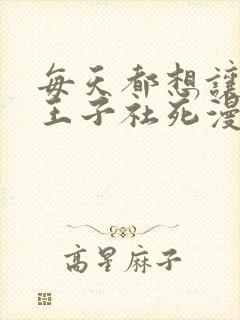 每天都想讓
王子社死漫
高星麻子